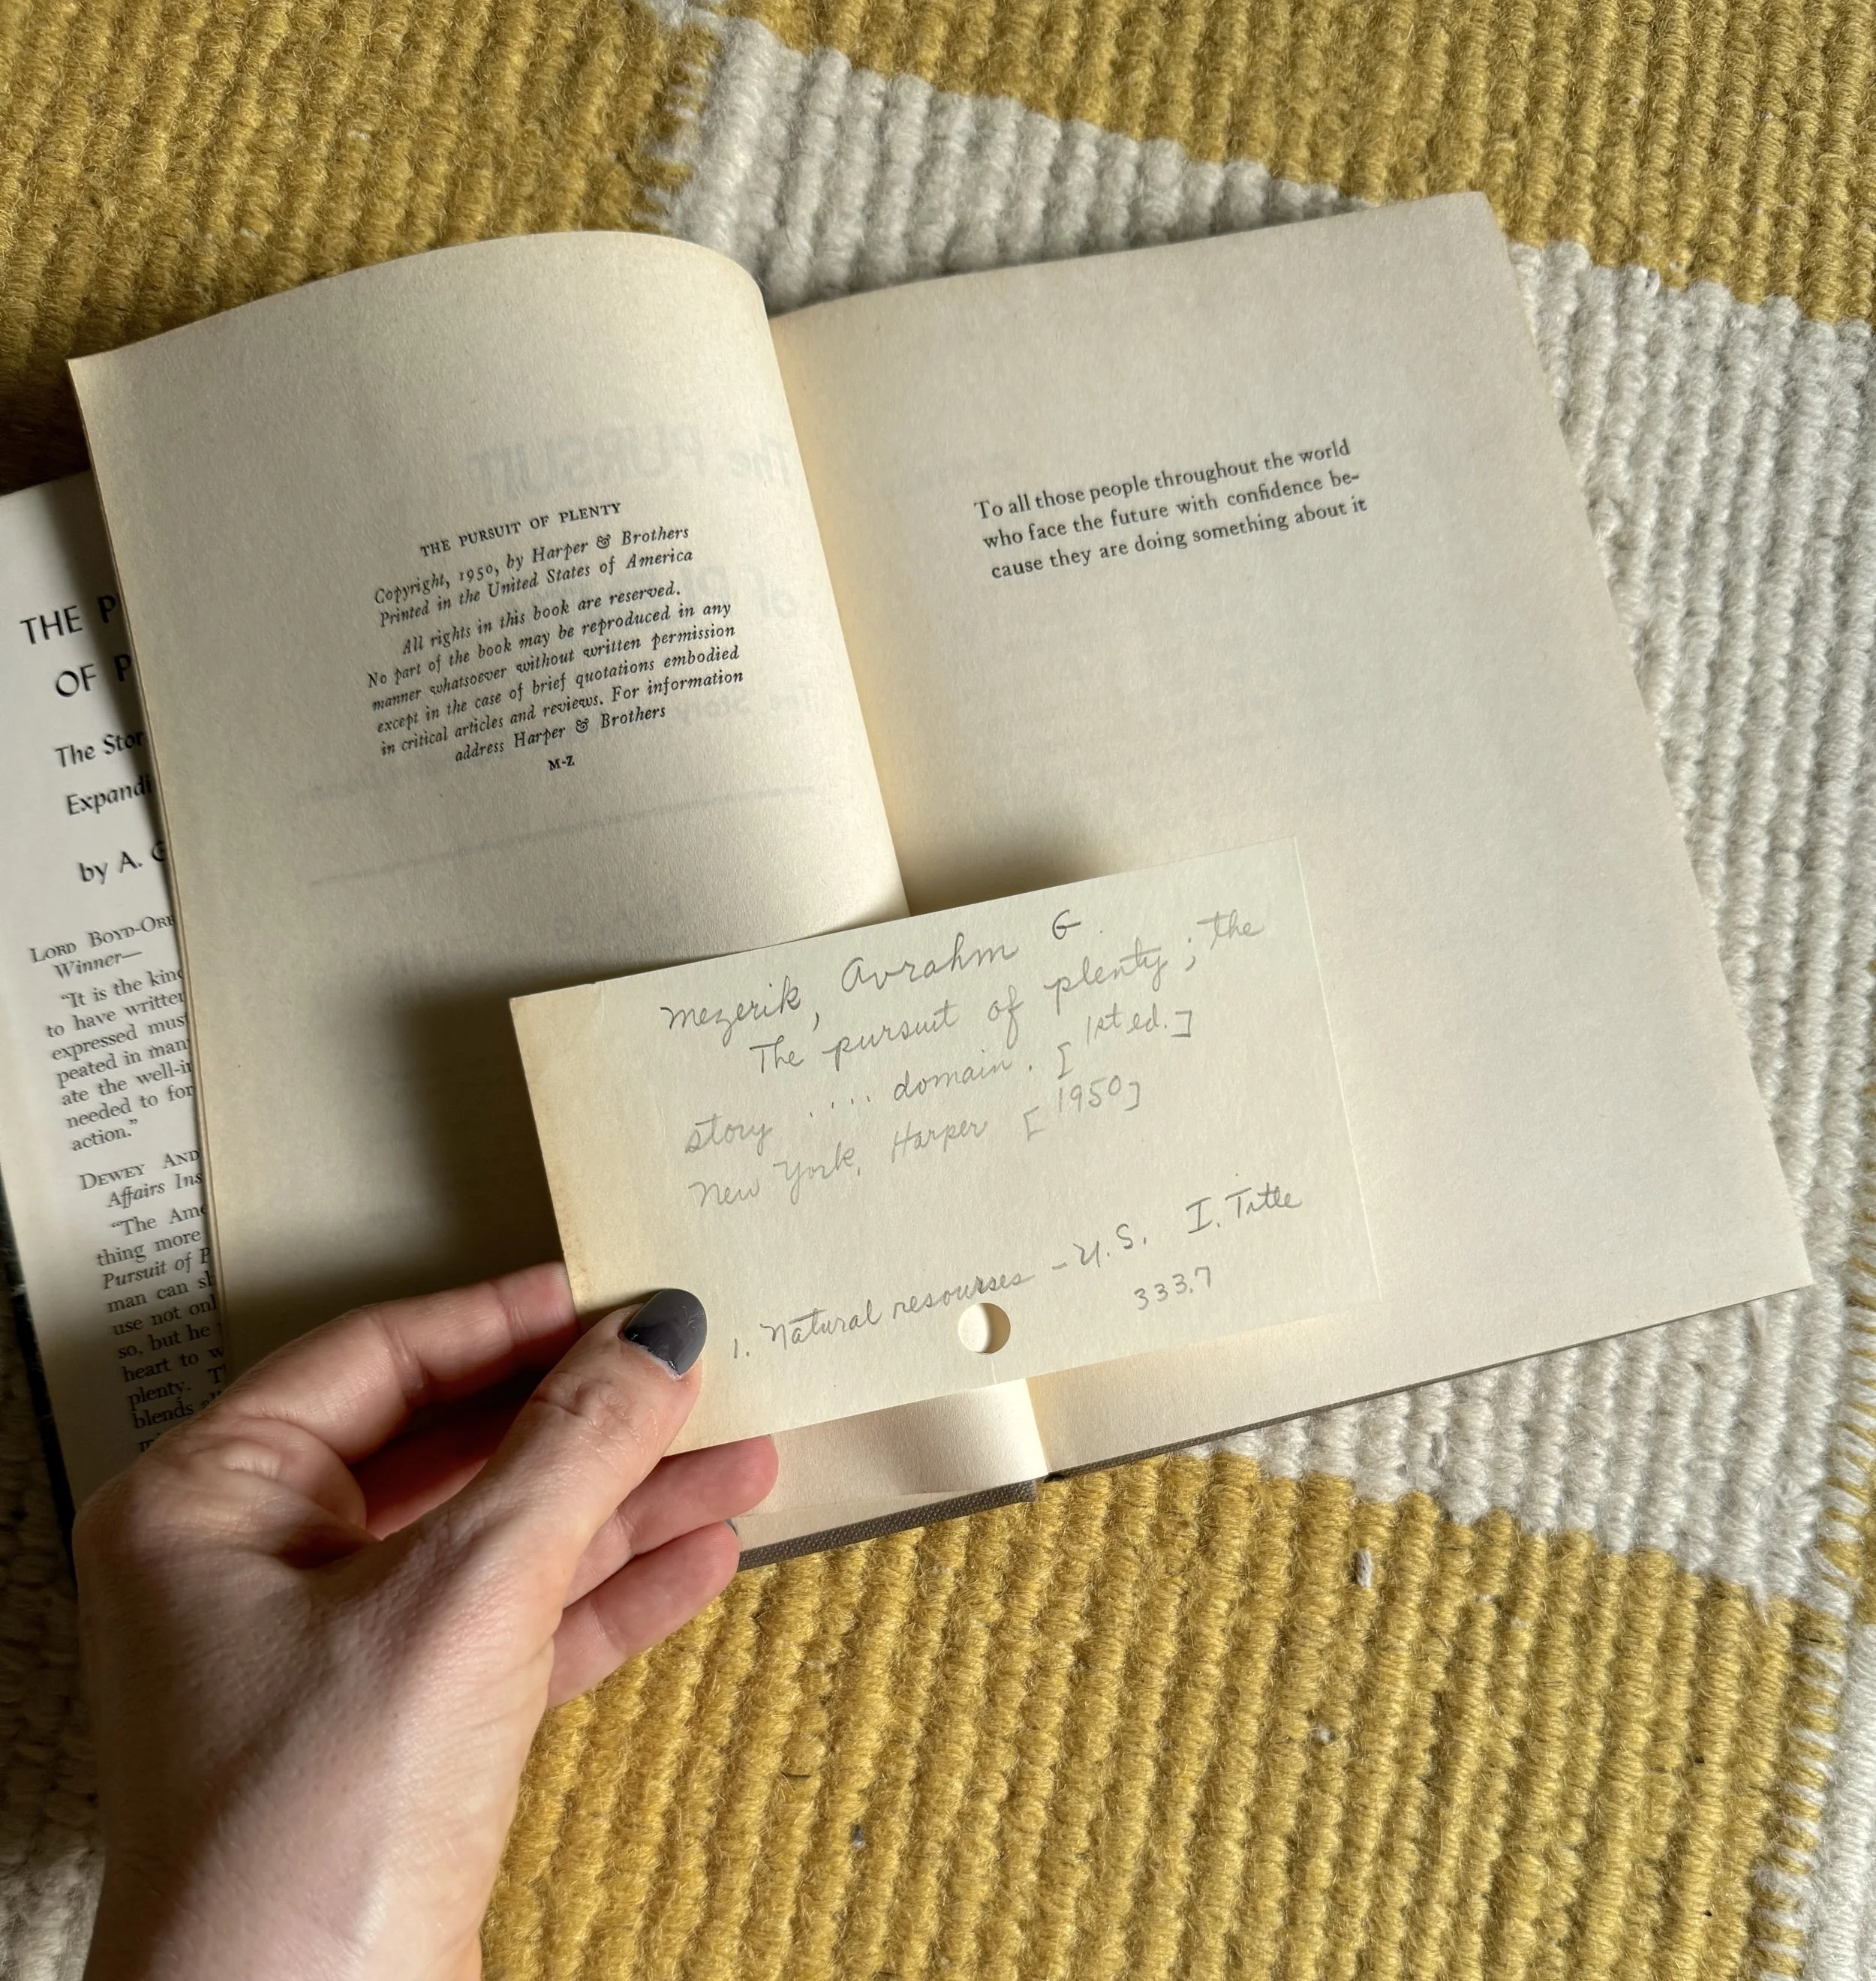 THE P
OF P
The Stor
Expandi
by A. G
LORD BOYD-ORR
Winner—
"It is the kind
to have written
expressed must
peated in man
ate the well-in
needed to for
action."
DEWEY AND
Affairs Ins
"The Ame
thing more
Pursuit of P
man can sh
use not onl
so, but he
heart to w
plenty. T
blends
THE PURSUIT OF PLENTY
Copyright, 1950, by Harper & Brothers
Printed in the United States of America
All rights in this book are reserved.
No part of the book may be reproduced in any
manner whatsoever without written permission
except in the case of brief quotations embodied
in critical articles and reviews. For information
address Harper & Brothers
M-Z
To all those people throughout the world
who face the future with confidence be-
cause they are doing something about it
Mezerik, Avrahm G.
The pursuit of plenty; the
story .... domain. [1st ed.]
New York, Harper [1950]
1. Natural resourses - U.S. I. Title
333.7